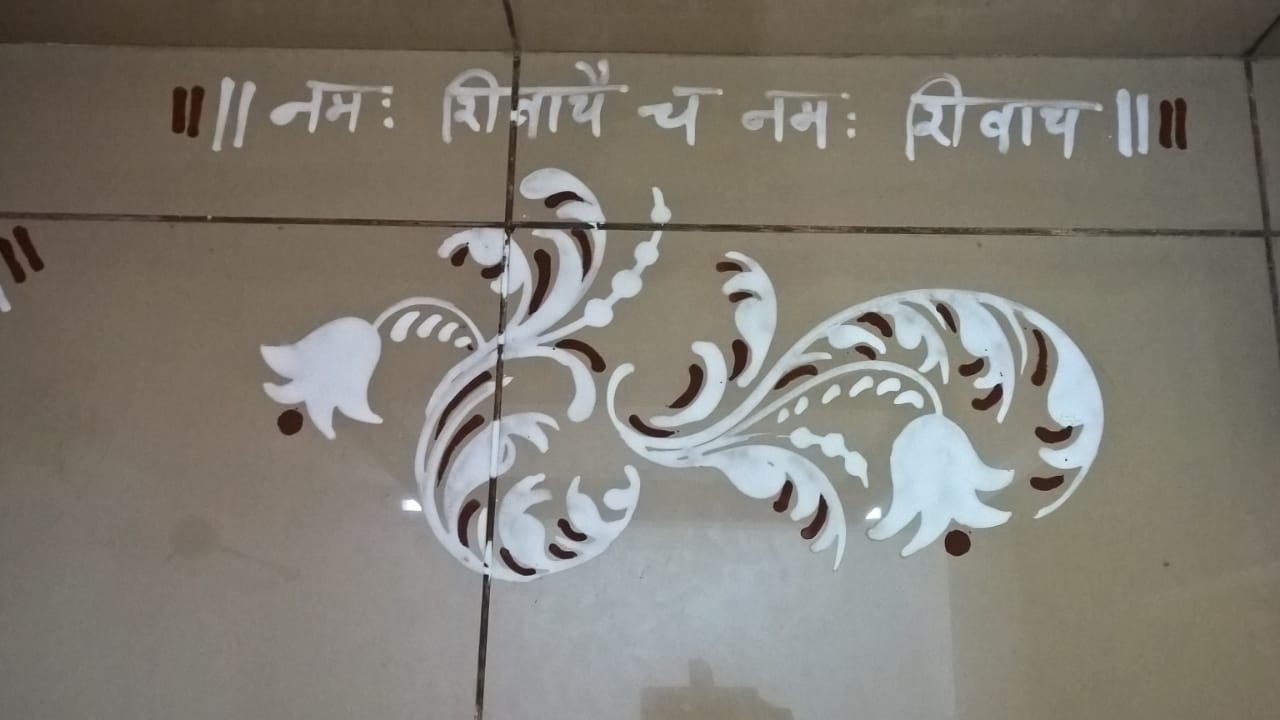 || नमः शिवायै च नमः शिवाय ||